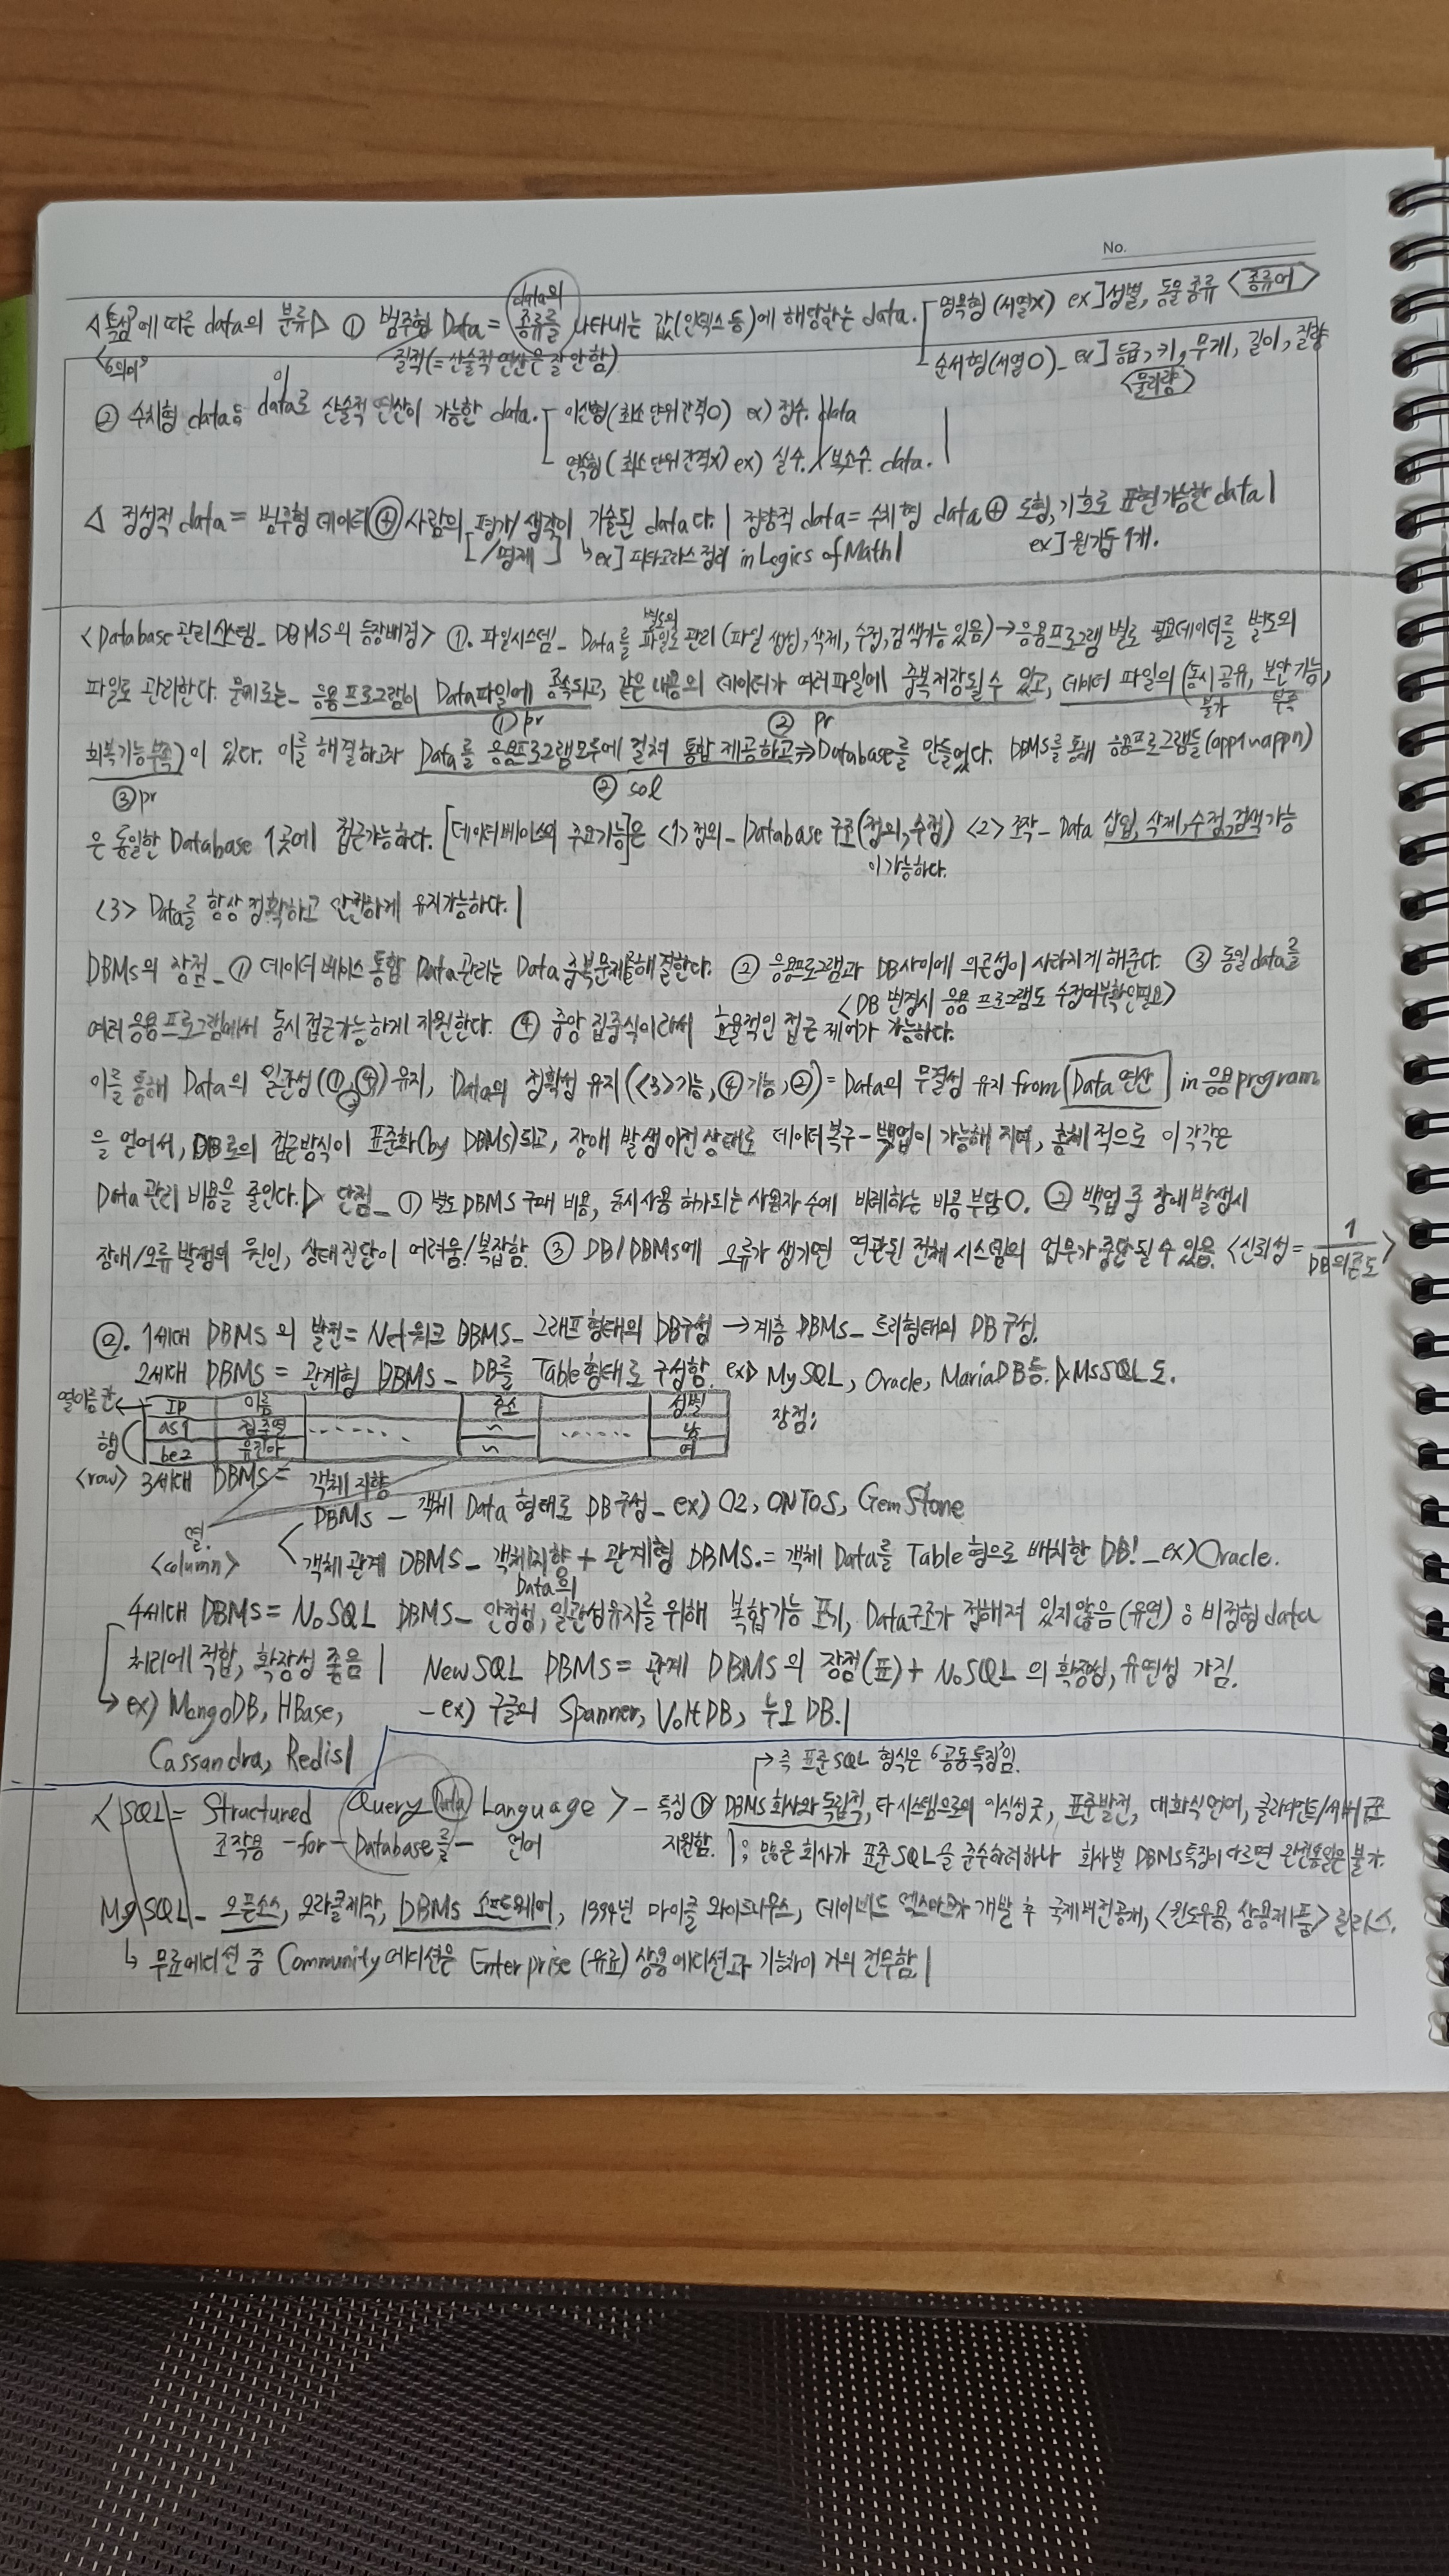 No.
<특성에 따른 data의 분류> ① 범주형 Data = data의 종류를 나타내는 값(인덱스 등)에 해당하는 data. 명목형 (서열X) ex] 성별, 동물 종류 <종류어>
질적(=산술적 연산은 잘 안함) 순서형(서열O) _ ex] 등급, 키, 무게, 길이, 질량
<물리량>
② 수치형 data는 data로 산술적 연산이 가능한 data. 이산형(최소 단위 간격O) ex) 정수. data
연속형 (최소 단위 간격X) ex) 실수. / 복소수. data.
정성적 data = 범주형 데이터 ⊕ 사람의 평가/생각이 기술된 data다. | 정량적 data = 수치형 data ⊕ 도형, 기호로 표현 가능한 data |
[/명제] ↳ex] 피타고라스 정리 in Logics of Math | ex] 원기둥 1개.
<Database 관리시스템_ DBMS의 등장배경> ①. 파일시스템_ Data를 별도의 파일로 관리 (파일 생성, 삭제, 수정, 검색기능 있음) → 응용프로그램 별로 필요데이터를 별도의
파일로 관리한다. 문제로는_ 응용프로그램이 Data파일에 종속되고, 같은 내용의 데이터가 여러파일에 중복저장될 수 있고, 데이터 파일의 (동시공유, 보안기능,
① pr ② pr 불가 부족
회복기능부족)이 있다. 이를 해결하고자 Data를 응용프로그램모두에 걸쳐 통합 제공하고 ⇒ Database를 만들었다. DBMS를 통해 응용프로그램들(app1 n appn)
③ pr ② sol
은 동일한 Database 1곳에 접근가능하다. [데이터베이스의 주요기능]은 <1> 정의_ Database 구조(정의, 수정) <2> 조작_ Data 삽입, 삭제, 수정, 검색 가능
이 가능하다.
<3> Data를 항상 정확하고 안전하게 유지가능하다. |
DBMS의 장점_ ① 데이터 베이스 통합 Data 관리는 Data 중복문제를 해결한다. ② 응용프로그램과 DB사이에 의존성이 사라지게 해준다. ③ 동일 data를
<DB 변경시 응용 프로그램도 수정여부확인필요>
여러 응용 프로그램에서 동시 접근가능하게 지원한다. ④ 중앙 집중식이라서 효율적인 접근 제어가 가능하다.
이를 통해 Data의 일관성(①,④) 유지, Data의 정확성 유지 (<3>기능, ④기능, ②) = Data의 무결성 유지 from [Data 연산] in 응용 program
을 얻어서, DB로의 접근방식이 표준화(by DBMS)되고, 장애 발생이전 상태로 데이터 복구-백업이 가능해 지며, 총체적으로 이 각각은
Data 관리 비용을 줄인다. ▷ 단점_ ① 별도 DBMS 구매 비용, 동시사용 허가되는 사용자 수에 비례하는 비용 부담O. ② 백업 중 장애 발생시
장애/오류 발생의 원인, 상태 진단이 어려움! 복잡함. ③ DB/DBMS에 오류가 생기면 연관된 전체 시스템의 업무가 중단될 수 있음. <신뢰성 = 1/DB의존도>
②. 1세대 DBMS의 발전 = 네트워크 DBMS_ 그래프 형태의 DB구성 → 계층 DBMS_ 트리형태의 DB 구성.
2세대 DBMS = 관계형 DBMS_ DB를 Table 형태로 구성함. ex▷ MySQL, Oracle, MariaDB등. ▷MsSQL도.
열이름 칸 ← ID 이름 주소 성별
행 as1 남 장점;
be2 여
<row> 3세대 DBMS = 객체 지향
DBMS - 객체 Data 형태로 DB 구성_ ex) O2, ONTOS, GemStone
열.
<column> 객체 관계 DBMS_ 객체지향 + 관계형 DBMS. = 객체 Data를 Table 형으로 배치한 DB! _ex) Oracle.
Data의
4세대 DBMS = NoSQL DBMS_ 안정성, 일관성유지를 위해 복합기능 포기, Data구조가 정해져 있지않음 (유연); 비정형 data
처리에 적합, 확장성 좋음 | NewSQL DBMS = 관계 DBMS의 장점(표) + NoSQL의 확장성, 유연성 가짐.
→ ex) MongoDB, HBase, - ex) 구글의 Spanner, VoltDB, 누오 DB. |
Cassandra, Redis |
→ 즉 표준SQL 형식은 '공통특징'임.
<SQL = Structured Query Data Language> - 특징 ① DBMS 회사와 독립적, 타 시스템으로의 이식성 굿, 표준발전, 대화식 언어, 클라이언트/서버 구조
조작용 -for- Database를 - 언어 지원함. |; 많은 회사가 표준SQL을 준수하려하나 회사별 DBMS특징이 다르면 완전통일은 불가.
MySQL_ 오픈소스, 오라클제작, DBMS 소프트웨어, 1994년 마이클 와이드니우스, 데이비드 액스마크가 개발 후 국제버전공개, <윈도우용, 상용제품> 릴리스.
↳ 무료에디션 중 Community 에디션은 Enterprise (유료) 상용 에디션과 기능차이 거의 전무함. |